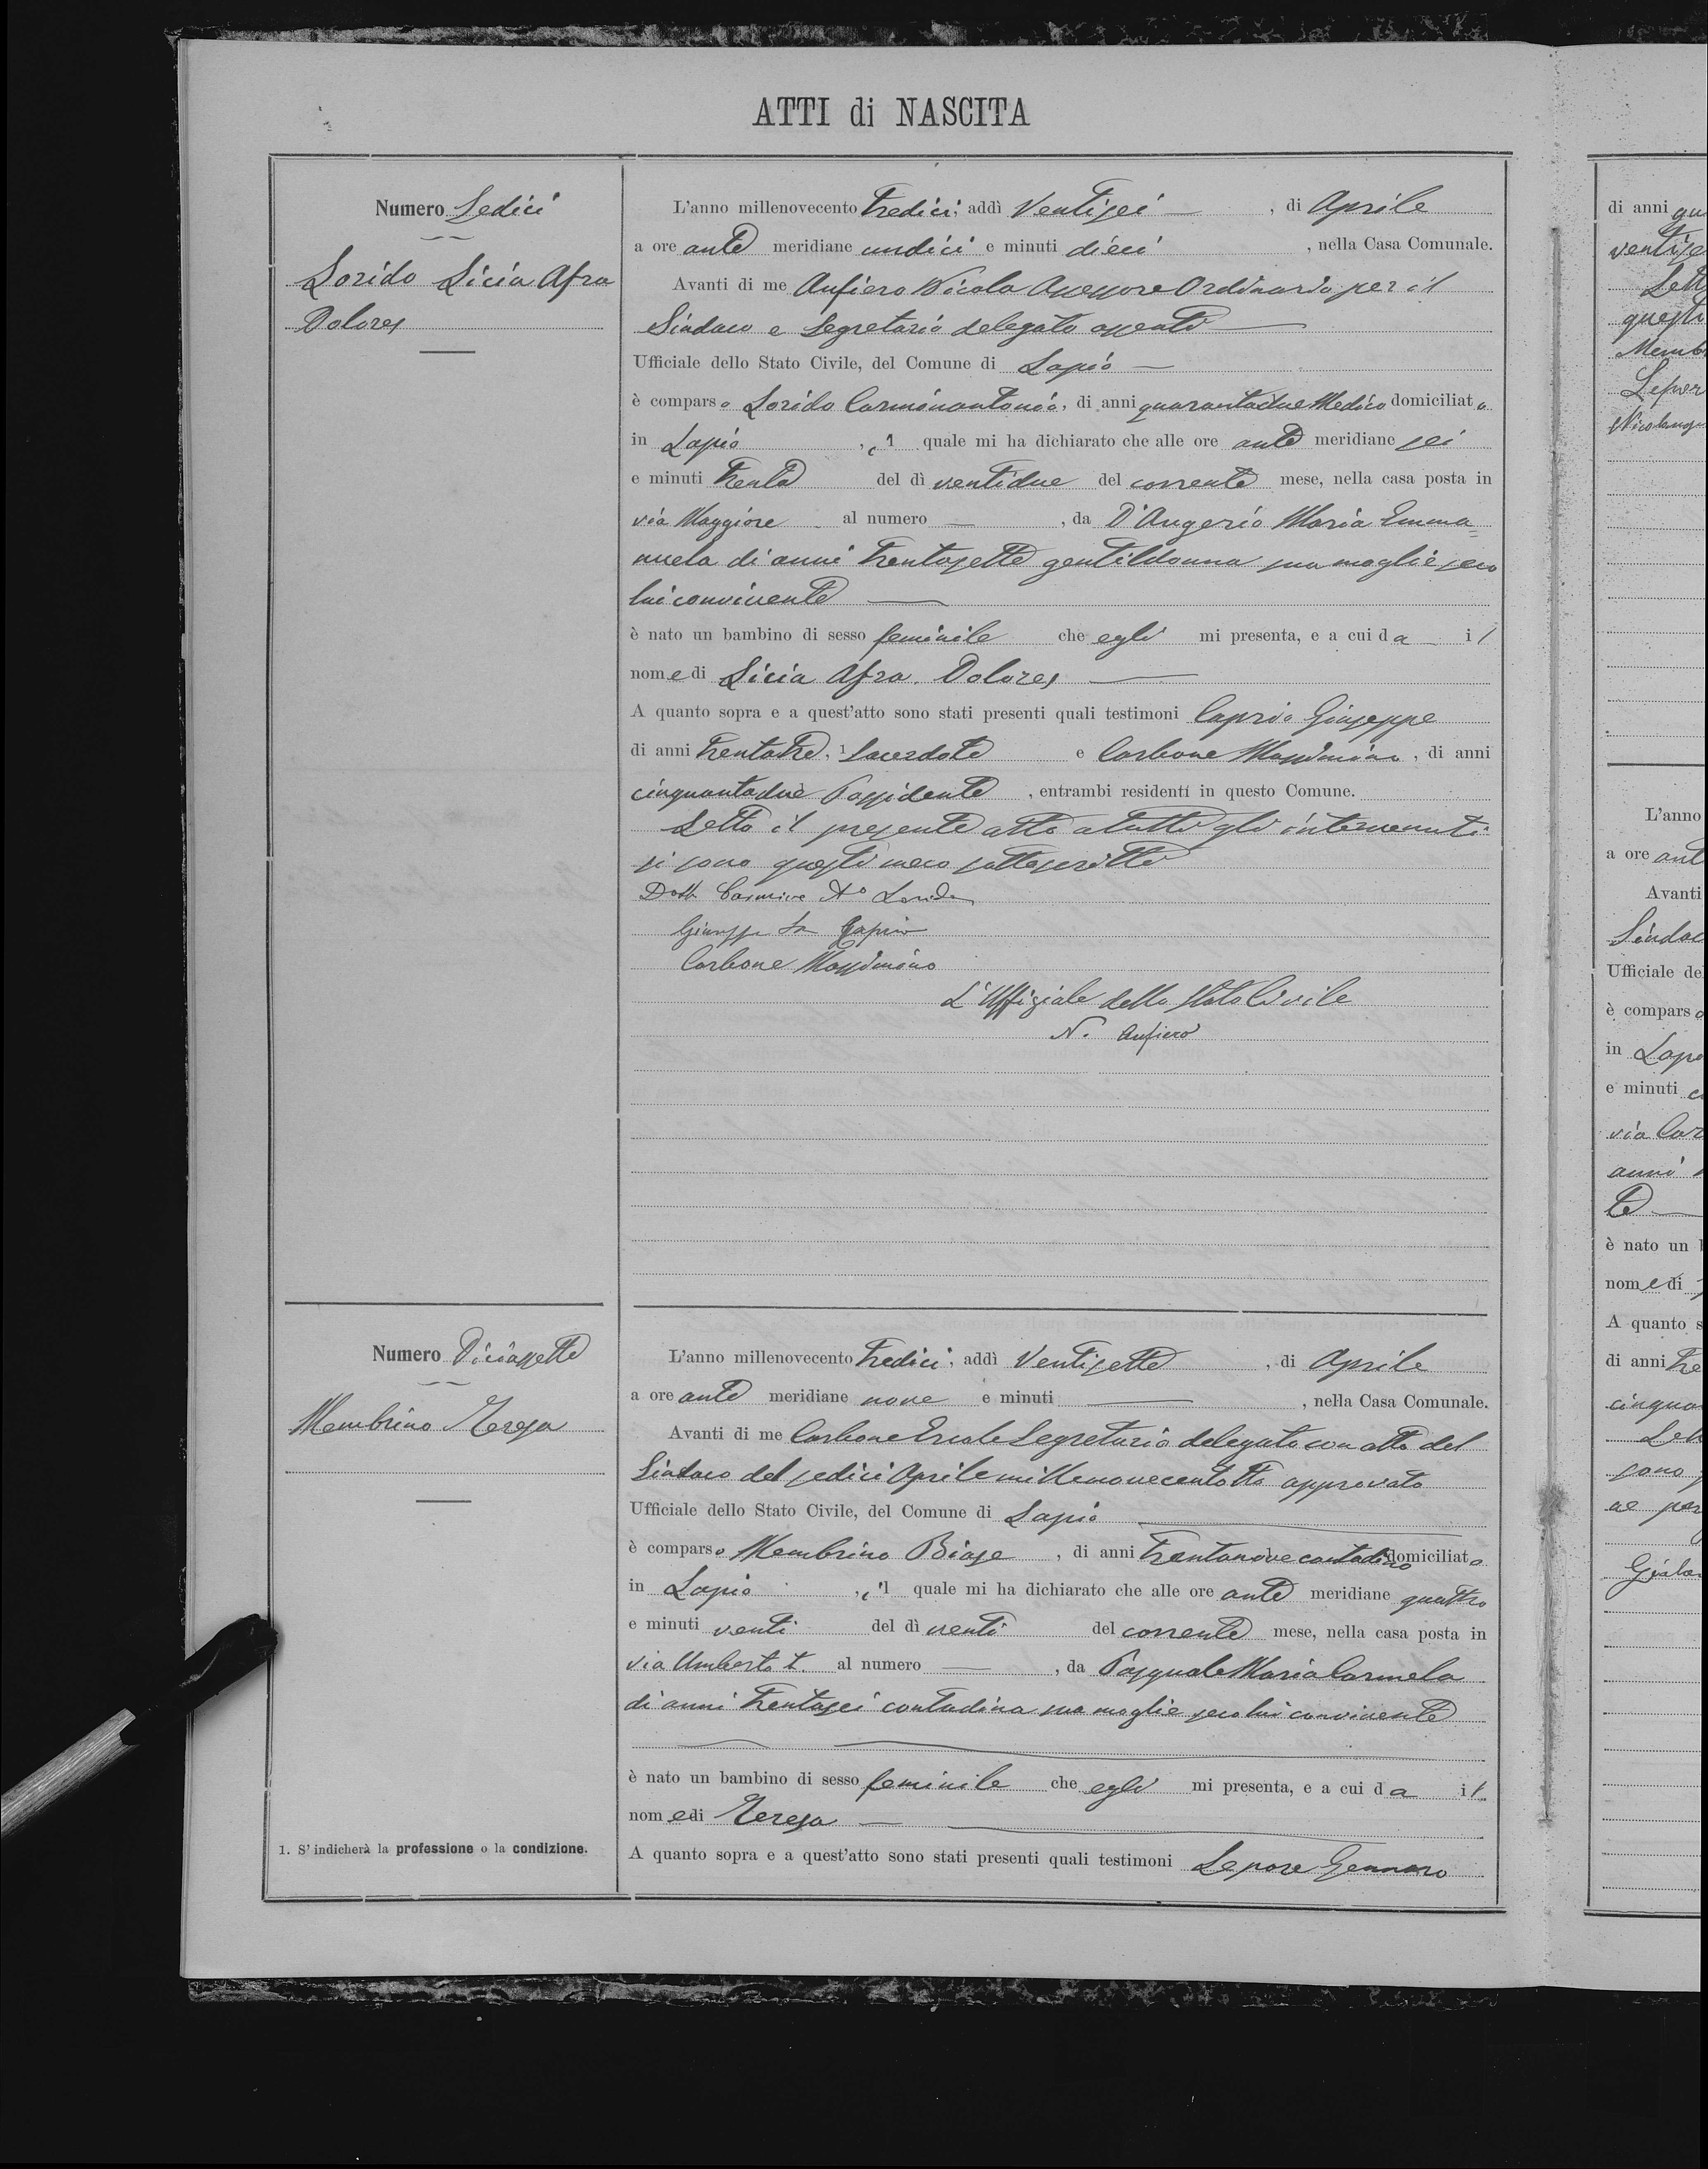 ATTI di NASCITA
Numero Sedici
Lorido Licia Afra
Dolores
L'anno millenovecento tredici, addì Ventisei, di Aprile
a ore ante meridiane undici e minuti dieci, nella Casa Comunale.
Avanti di me Anfiero Nicola Assessore Ordinario per il
Sindaco e Segretario delegato assenti
Ufficiale dello Stato Civile, del Comune di Lapio
è comparso Lorido Carminantonio, di anni quarantadue Medico domiciliato
in Lapio, il quale mi ha dichiarato che alle ore ante meridiane sei
e minuti trenta del dì ventidue del corrente mese, nella casa posta in
via Maggiore al numero —, da D'Angerio Maria Emma=
nuela di anni trentasette gentildonna sua moglie seco
lui convivente
è nato un bambino di sesso feminile che egli mi presenta, e a cui da il
nome di Licia Afra Dolores
A quanto sopra e a quest'atto sono stati presenti quali testimoni Caprio Giuseppe
di anni trentatre, 1 Sacerdote e Carbone Massimino, di anni
cinquantadue Possidente, entrambi residenti in questo Comune.
Letto il presente atto a tutti gli intervenuti
si sono questi meco sottoscritti
Dott. Carmine A° Lorido
Giuseppe Caprio
Carbone Massimino
L'Uffiziale dello Stato Civile
N. Anfiero
Numero Diciassette
Membrino Teresa
L'anno millenovecento tredici, addì Ventisette, di Aprile
a ore ante meridiane nove e minuti —, nella Casa Comunale.
Avanti di me Carbone Ercole Segretario delegato con atto del
Sindaco del sedici Aprile millenovecentotto approvato
Ufficiale dello Stato Civile, del Comune di Lapio
è comparso Membrino Biase, di anni trentanove contadino domiciliato
in Lapio, il quale mi ha dichiarato che alle ore ante meridiane quattro
e minuti venti del dì venti del corrente mese, nella casa posta in
via Umberto I. al numero —, da Pasquale Maria Carmela
di anni trentasei contadina sua moglie seco lui convivente
è nato un bambino di sesso feminile che egli mi presenta, e a cui da il
nome di Teresa
A quanto sopra e a quest'atto sono stati presenti quali testimoni Lepore Gennaro
1. S'indicherà la professione o la condizione.
di anni
Membr
L'anno
a ore ant
Avanti
Sindac
Ufficiale de
è comparso
in Lapi
e minuti
via Car
anni
te
è nato un
nome di
A quanto s
di anni tre
cinqua
sono